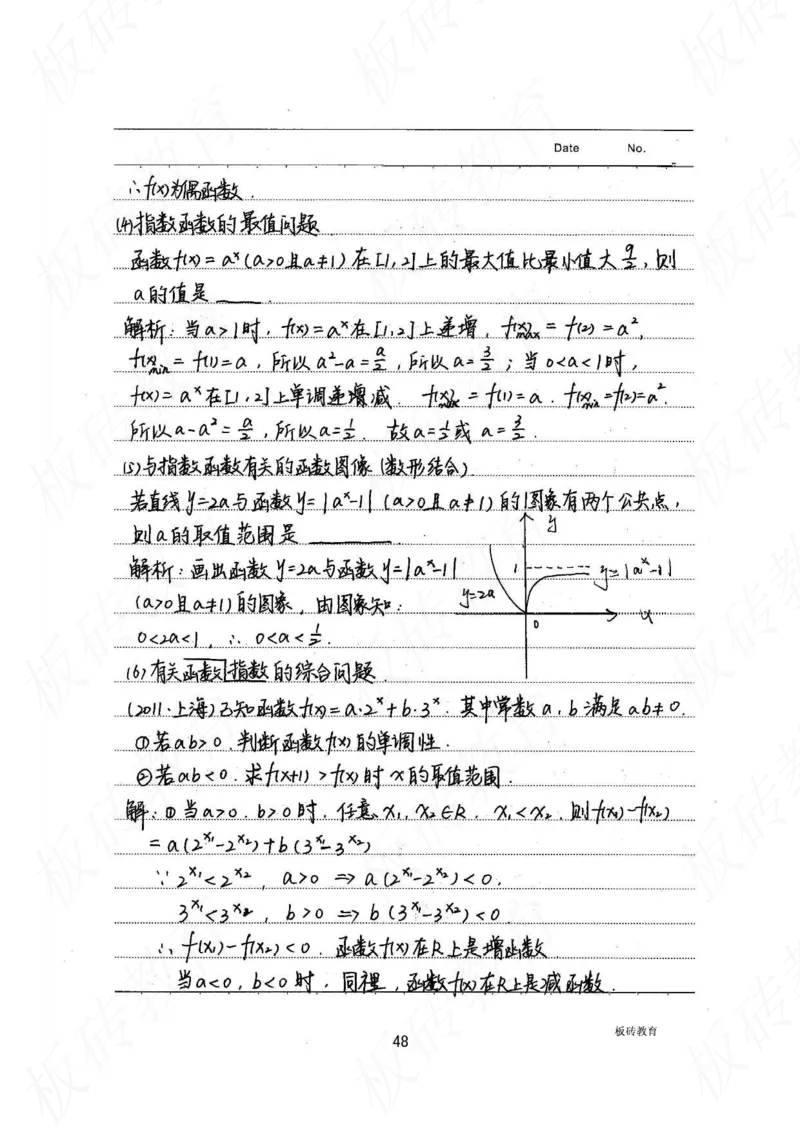 Date No.
∴f(x)为偶函数.
(4)指数函数的最值问题
函数f(x)=aˣ(a>0且a≠1)在[1,2]上的最大值比最小值大a/2,则
a的值是____.
解析:当a>1时,f(x)=aˣ在[1,2]上递增,f(x)max=f(2)=a²,
f(x)min=f(1)=a,所以a²-a=a/2,所以a=3/2;当0<a<1时,
f(x)=aˣ在[1,2]上单调递减.f(x)max=f(1)=a.f(x)min=f(2)=a².
所以a-a²=a/2,所以a=1/2.故a=1/2或a=3/2.
(5)与指数函数有关的函数图像(数形结合)
若直线y=2a与函数y=|aˣ-1|(a>0且a≠1)的图象有两个公共点,
则a的取值范围是____
解析:画出函数y=2a与函数y=|aˣ-1|
(a>0且a≠1)的图象,由图象知:
0<2a<1,∴0<a<1/2.
y
1
y=|aˣ-1|
y=2a
0
x
(6)有关函数指数的综合问题
(2011·上海)已知函数f(x)=a·2ˣ+b·3ˣ.其中常数a,b满足ab≠0.
①若ab>0.判断函数f(x)的单调性.
②若ab<0.求f(x+1)>f(x)时x的取值范围.
解:①当a>0.b>0时,任意x₁,x₂∈R,x₁<x₂.则f(x₁)-f(x₂)
=a(2^x₁-2^x₂)+b(3^x₁-3^x₂)
∵2^x₁<2^x₂,a>0⇒a(2^x₁-2^x₂)<0,
3^x₁<3^x₂,b>0⇒b(3^x₁-3^x₂)<0
∴f(x₁)-f(x₂)<0.函数f(x)在R上是增函数
当a<0,b<0时,同理,函数f(x)在R上是减函数.
板砖教育
48